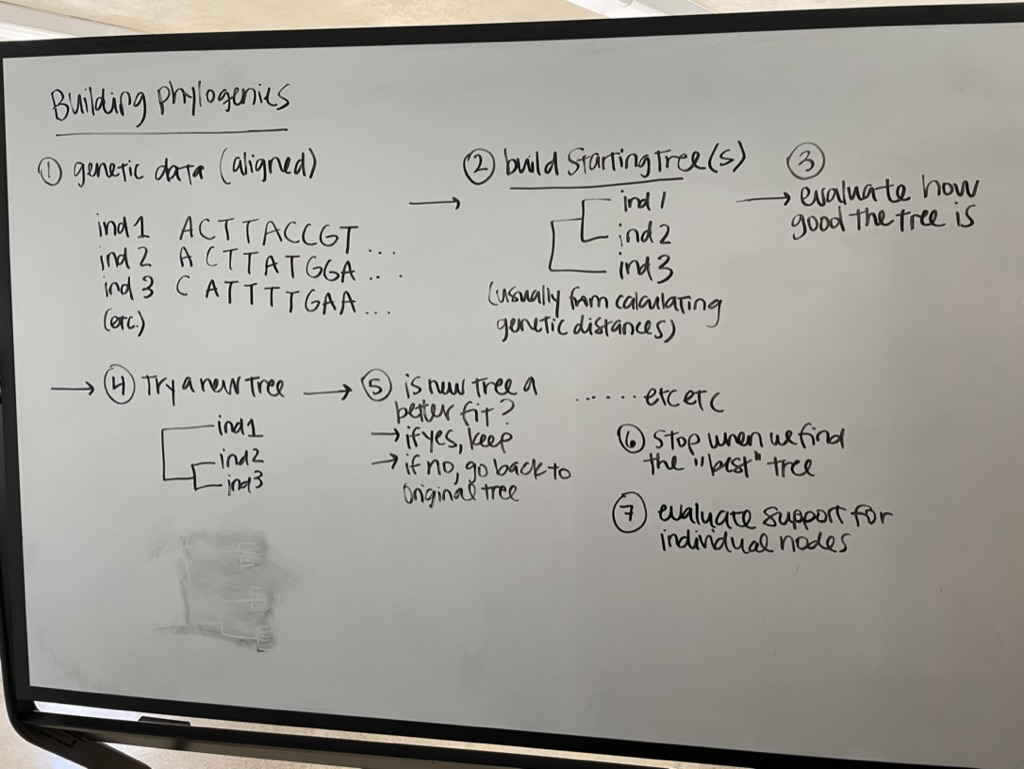 Building phylogenies
① genetic data (aligned)
ind 1 ACTTACCGT...
ind 2 ACTTATGGA...
ind 3 CATTTTGAA...
(etc.)
→ ② build starting tree(s)
ind 1
ind 2
ind 3
(usually from calculating
genetic distances)
③
→ evaluate how
good the tree is
→ ④ Try a new tree
ind 1
ind 2
ind 3
→ ⑤ is new tree a
better fit?
→ if yes, keep
→ if no, go back to
original tree
...... etc etc
⑥ Stop when we find
the "best" tree
⑦ evaluate support for
individual nodes